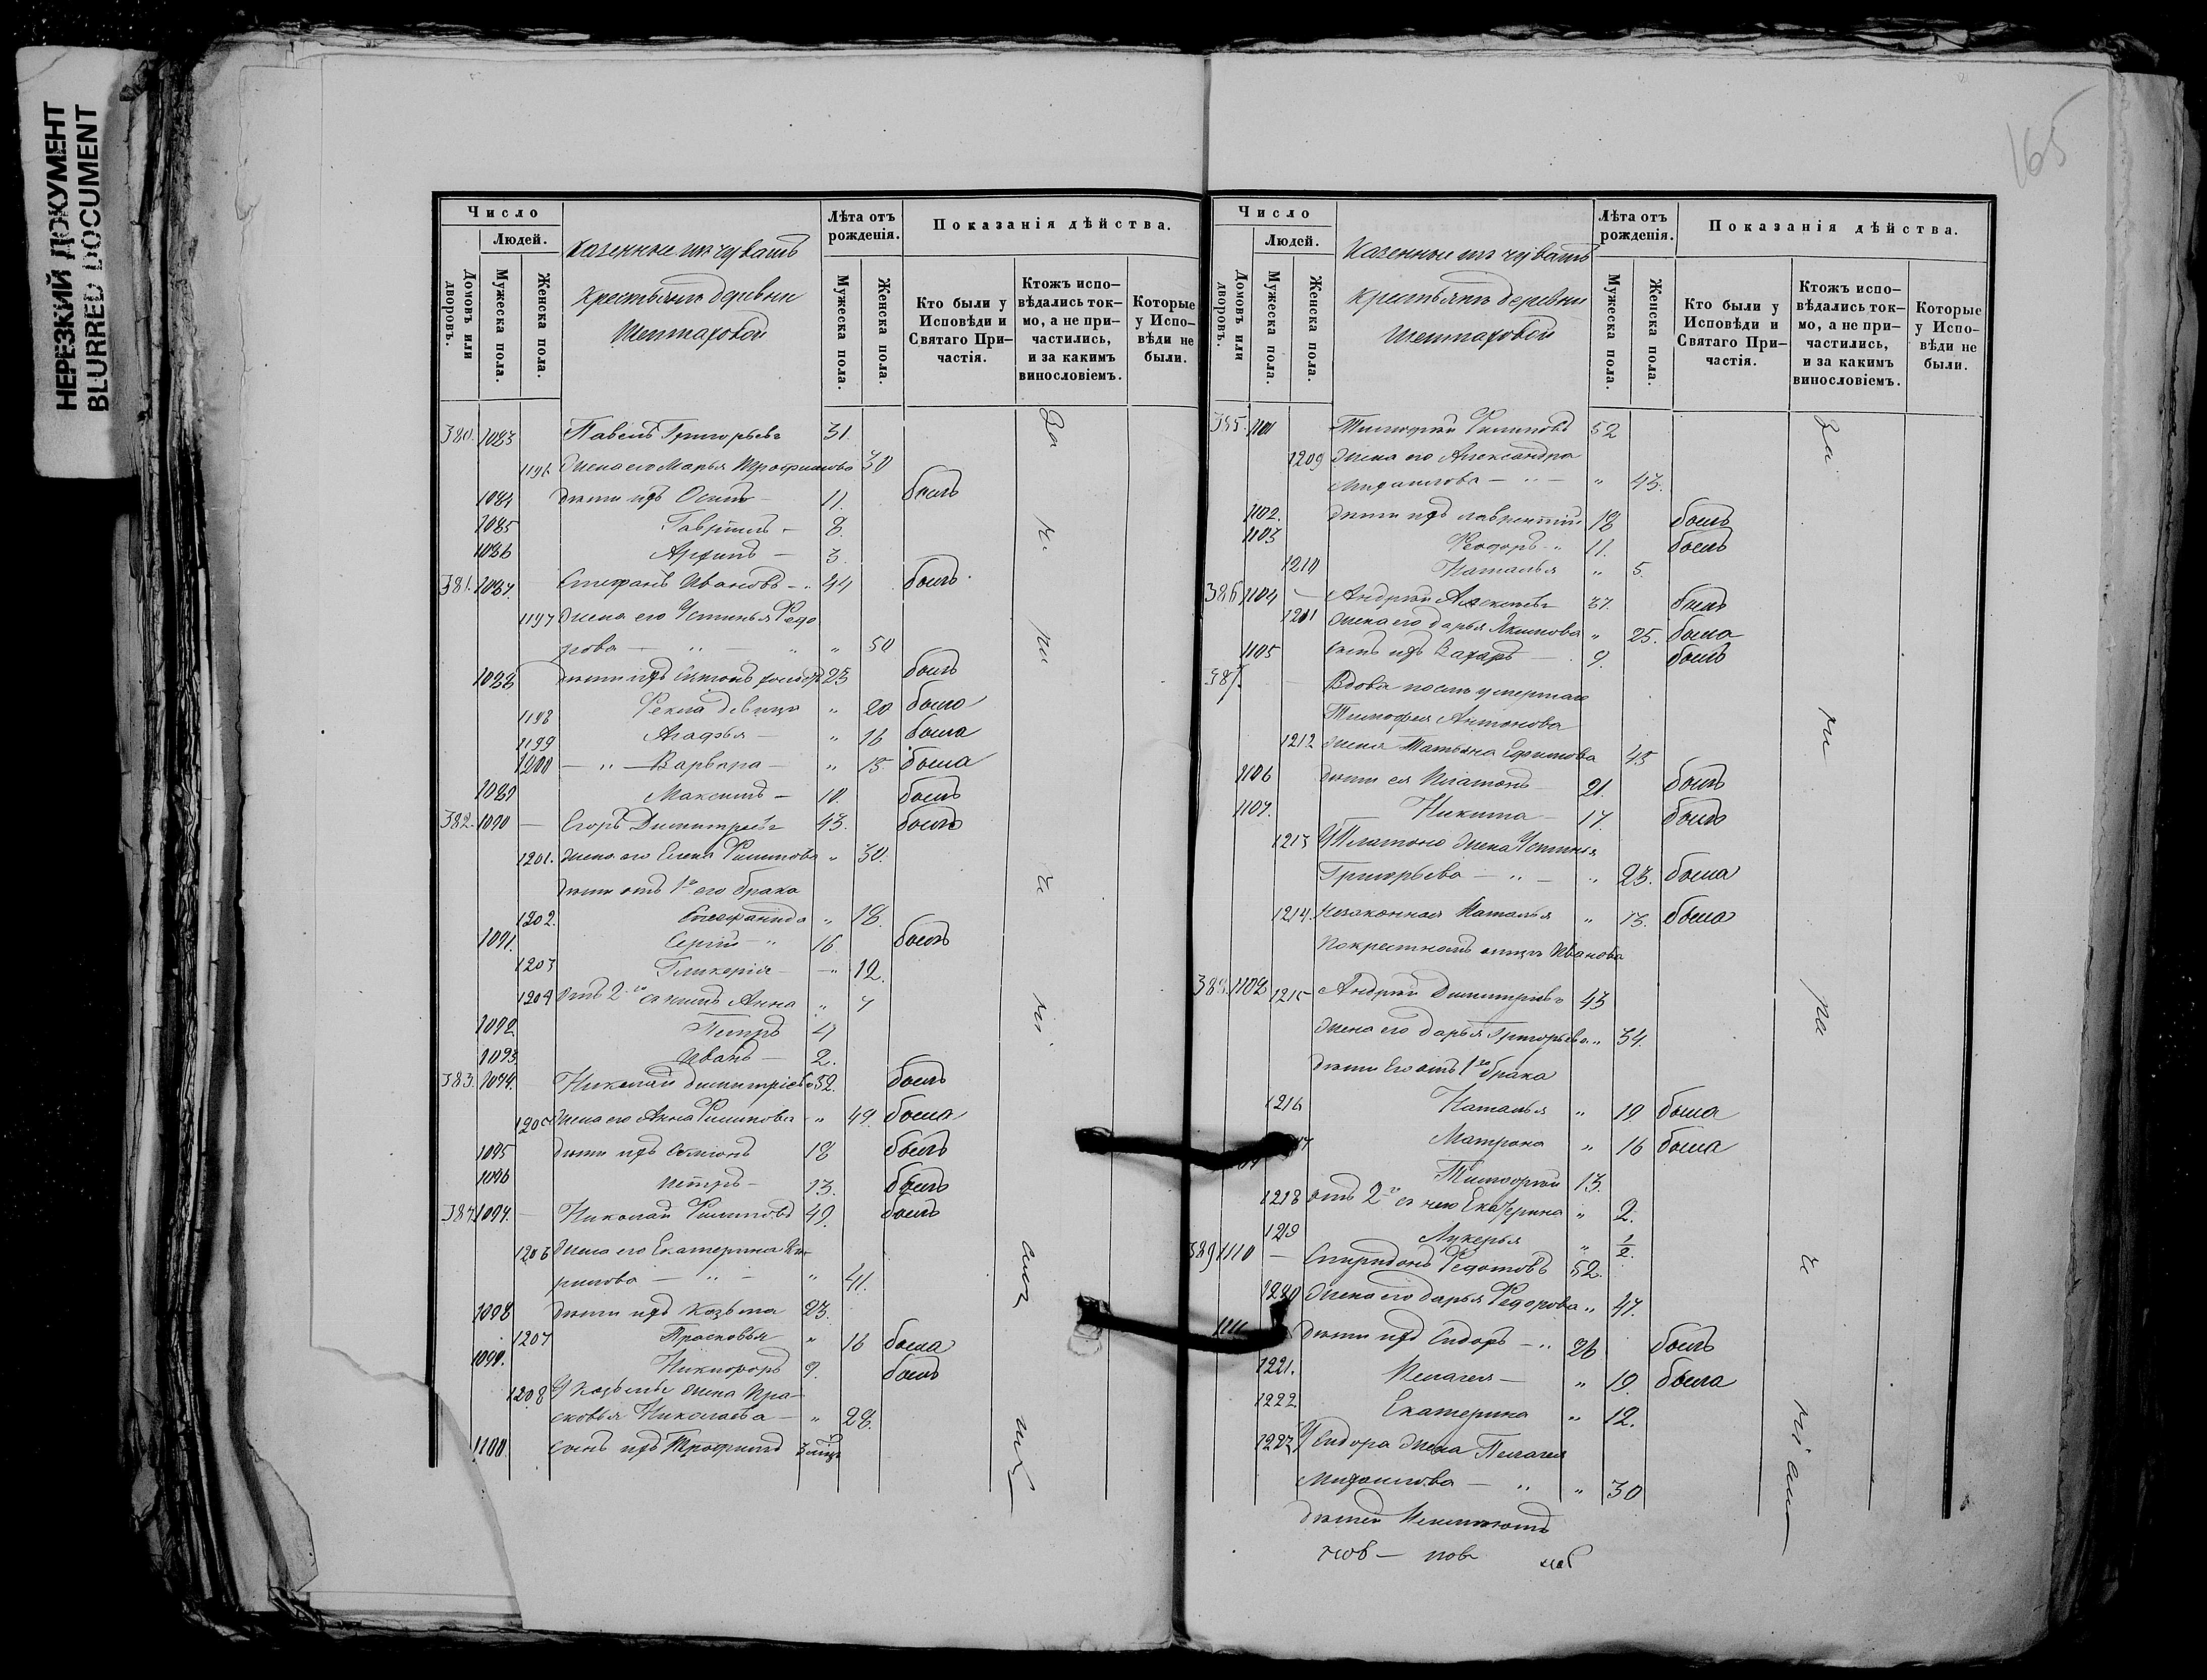 НЕРЕЗКИЙ ДОКУМЕНТ
BLURRED DOCUMENT
165
Число
Людей.
Домовъ или дворовъ.
Мужеска пола.
Женска пола.
Казенные изъ чувашъ
крестьянъ деревни
Шептаховой
Лѣта отъ рожденія.
Мужеска пола.
Женска пола.
Показанія дѣйства.
Кто были у Исповѣди и Святаго Причастія.
Ктожъ исповѣдались токмо, а не причастились, и за какимъ винословіемъ.
Которые у Исповѣди не были.
380. 1083 Павелъ Григорьевъ 31.
1196 Жена его Марья Трофимова 30
1084 Дѣти ихъ Осипъ — 11. былъ
1085 Гавріилъ — 8.
1086 Архипъ — 3.
381. 1087. Стефанъ Ивановъ — „ 44 былъ
1197 Жена его Устинья Ѳедо
рова — „ — „ „ 50
1088 Дѣти ихъ Симонъ холостъ 23 былъ
1198 Ѳекла девица „ 20 была
1199 Агафья — „ 16 была
1200 — „ — Варвара — „ 15. была
1089 Максимъ — 10. былъ
382. 1090 — Егоръ Димитріевъ 43. былъ
1201. Жена его Елена Филипова „ 30.
Дѣти отъ 1го его брака
1202. Стефанида „ 18.
1091. Сергій — „ 16 былъ
1203 Гликерія — „ 12.
1204 Отъ 2го съ нимъ Анна „ 7
1092 Петръ 4
1093 Иванъ — 2.
383. 1094. Николай Димитріевъ 52. былъ
1205 Жена его Анна Филипова „ 49. была
1095 Дѣти ихъ Семіонъ 18 былъ
1096 Петръ — 13. былъ
384. 1097. — Николай Филиповъ 49. былъ
1206 Жена его Екатерина Ки-
рилова — „ — „ 41.
1098 Дѣти ихъ Козьма 23.
1207 Прасковья „ 16 была
1099. Никифоръ 9. былъ
1208 У Козьмы жена Пра-
сковья Николаева — „ 28.
1100. Сынъ ихъ Трофимъ 3 мѣс
Число
Людей.
Домовъ или дворовъ.
Мужеска пола.
Женска пола.
Казенные изъ чувашъ
крестьянъ деревни
Шептаховой
Лѣта отъ рожденія.
Мужеска пола.
Женска пола.
Показанія дѣйства.
Кто были у Исповѣди и Святаго Причастія.
Ктожъ исповѣдались токмо, а не причастились, и за какимъ винословіемъ.
Которые у Исповѣди не были.
385. 1101 Тимофей Филиповъ 52
1209 Жена его Александра
Михаилова — „ — „ 43.
1102. Дѣти ихъ Лаврентій 18 былъ
1103 Ѳеодоръ „ 11. былъ
1210 Наталья „ 5.
386. 1104 — Андрей Алексѣевъ 37. былъ
1211 Жена его Дарья Якимова „ 25. была
1105 Сынъ ихъ Захаръ — 9. былъ
387. Вдова послѣ умершаго
Тимофея Антонова
1212 Жена Татьяна Ефимова 45
1106 Дѣти ея Платонъ 21. былъ
1107. Никита — 17. былъ
1213 У Платона жена Устинья
Григорьева — „ — „ 23. была
1214. Незаконная Наталья „ 13. была
Покрестномъ отцѣ Иванова
388. 1108 1215 Андрей Димитріевъ 43
Жена его Дарья Григорьева „ 34.
Дѣти Его отъ 1го брака
1216 Наталья „ 19 была
Матрона „ 16 была
Тимофей 13.
1218 Отъ 2го съ нею Екатерина „ 2.
1219 Лукерья „ 1/2
389 1110 — Спиридонъ Ѳедотовъ 52.
1220 Жена его Дарья Ѳедорова „ 47.
1111 Дѣти ихъ Сидоръ — „ 26 былъ
1221. Пелагея — „ 19. была
1222 Екатерина „ 12.
1223 У Сидора жена Пелагея
Михаилова — „ „ 30